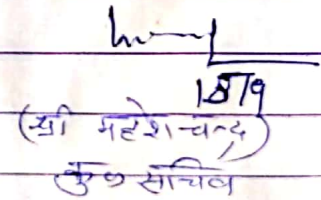 15/9
(श्री महेश चन्द्र)
कुल सचिव